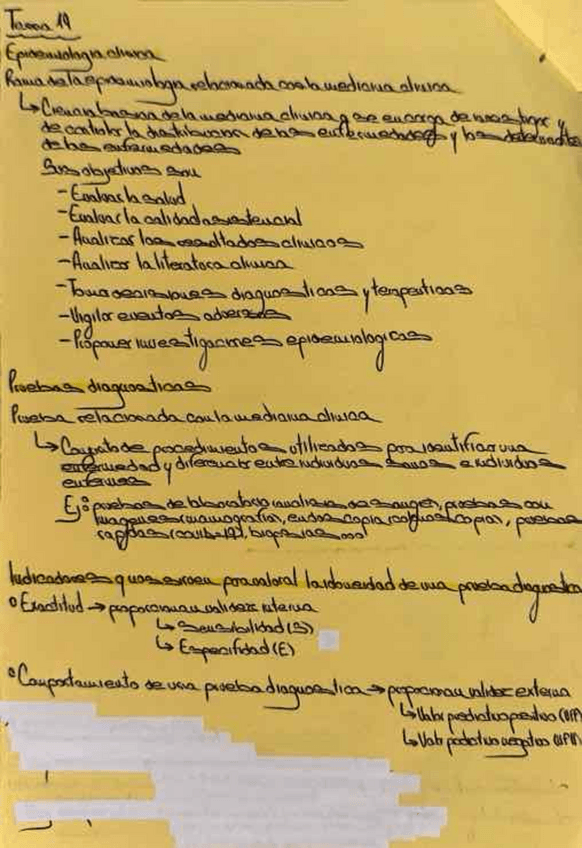 Tema 19
Epidemiología clínica
Rama de la epidemiología relacionada con la medicina clínica
↳ Ciencia básica de la medicina clínica q se encarga de investigar y
de controlar la distribución de las enfermedades y los determinantes
de las enfermedades
Sus objetivos son
- Evaluar la salud
- Evaluar la calidad asistencial
- Analizar los resultados clínicos
- Analizar la literatura clínica
- Toma decisiones diagnosticas y terapeuticas
- Vigilar eventos adversos
- Proponer investigaciones epidemiologicas
Pruebas diagnosticas
Prueba relacionada con la medicina clínica
↳ Conjunto de procedimientos utilizados para identificar una
enfermedad y diferenciar entre individuos sanos e individuos
enfermos
Ej: pruebas de laboratorio (analisis de sangre), pruebas con
imagenes (mamografia), endoscopia (colonoscopia), pruebas
rapidas (covid-19), biopsias...
Indicadores que sirven para valorar la idoneidad de una prueba diagnostica
Exactitud → proporcionan validez interna
↳ Sensibilidad (S)
↳ Especifidad (E)
Comportamiento de una prueba diagnostica → proporcionan validez externa
↳ Valor predictivo positivo (VPP)
↳ Valor predictivo negativo (VPN)